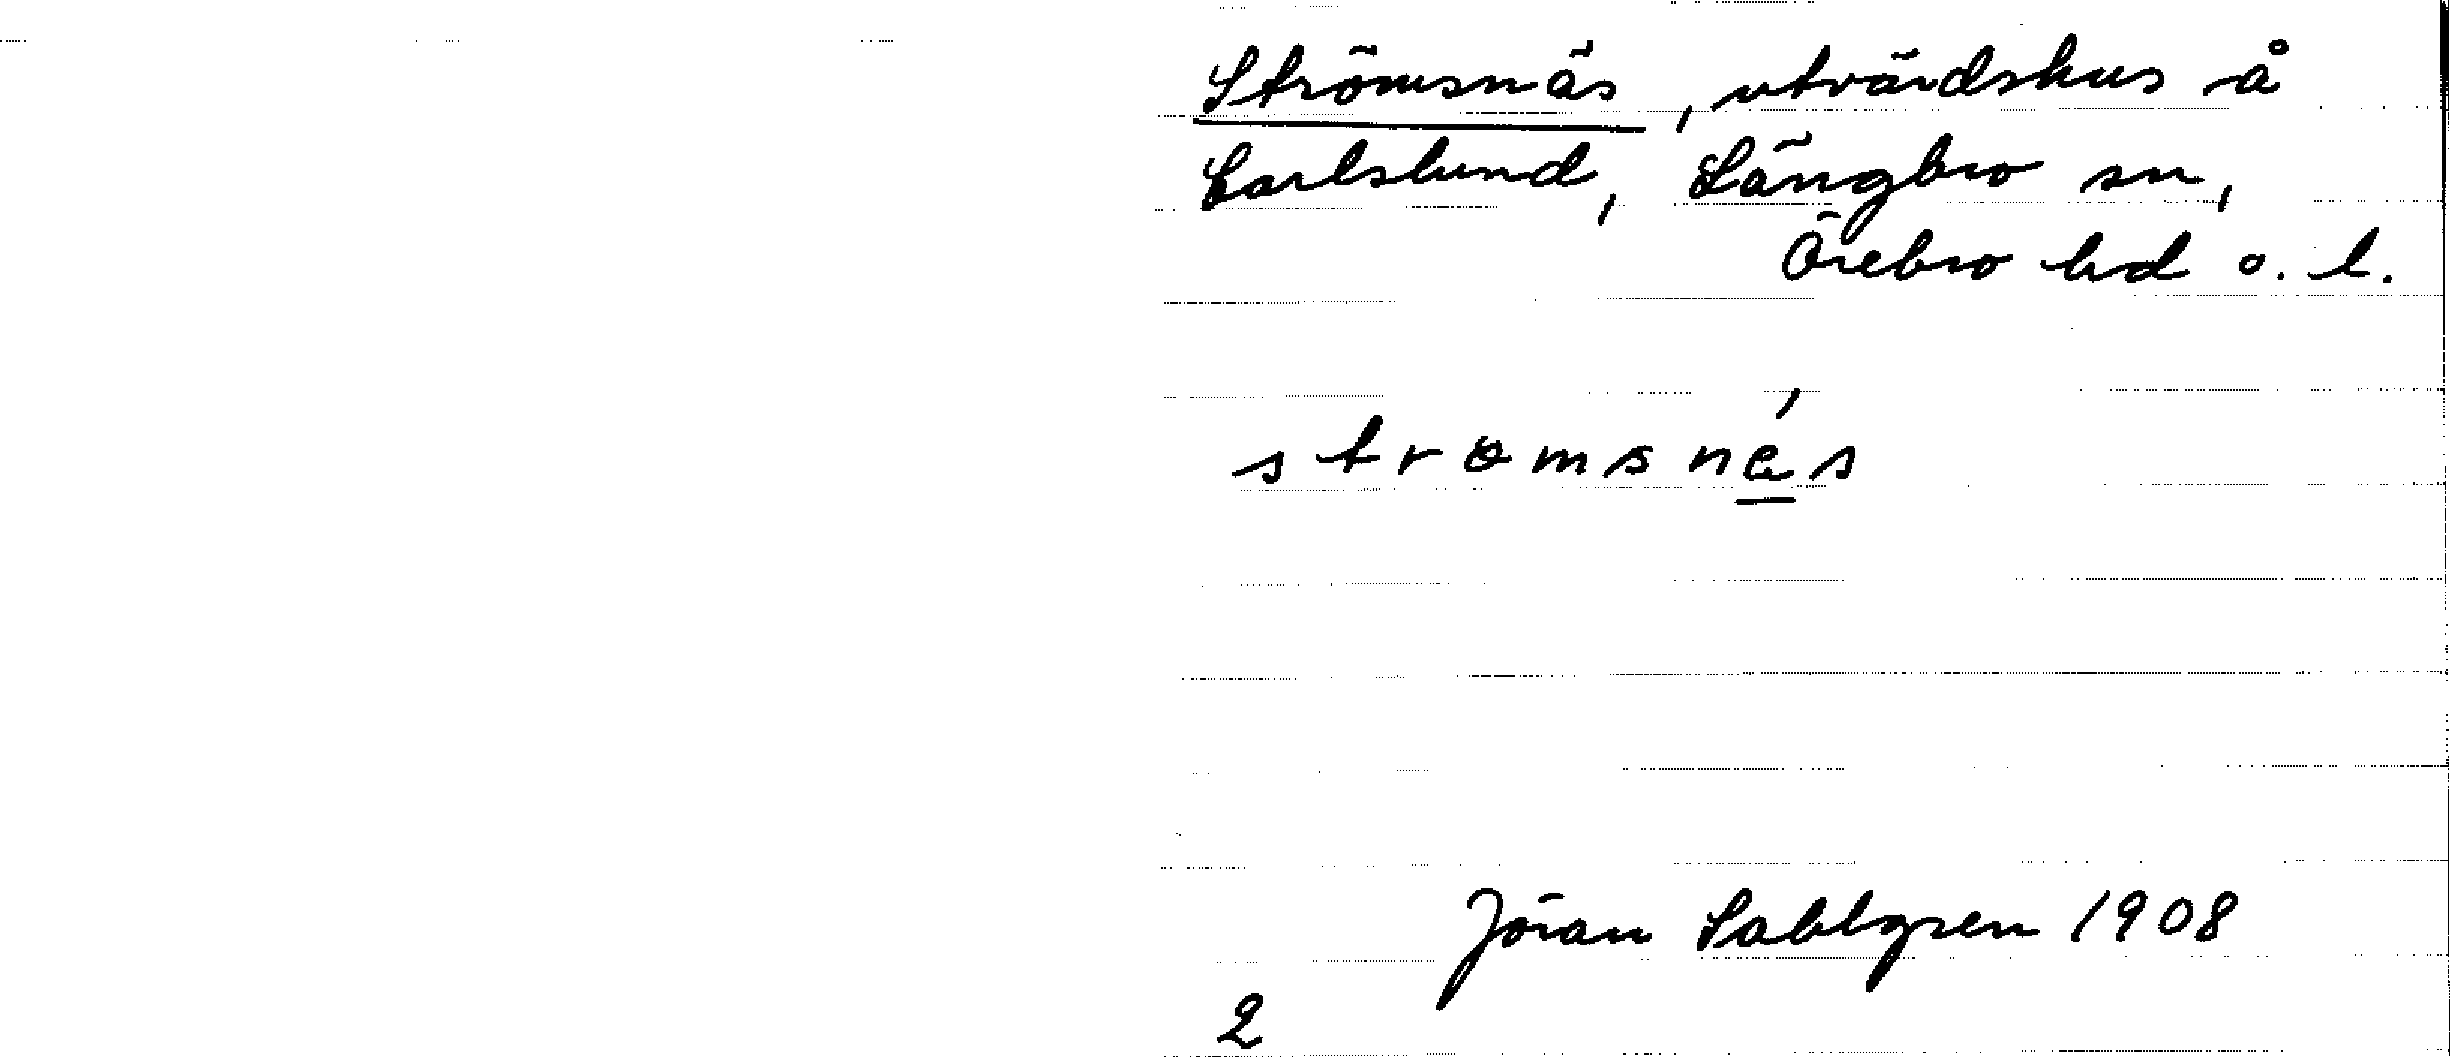 Strömsnäs, utvärdshus å
Carlslund, Längbro sn,
Örebro hd o. l.
strɵmsnǽ̲s
Jöran Sahlgren 1908
2